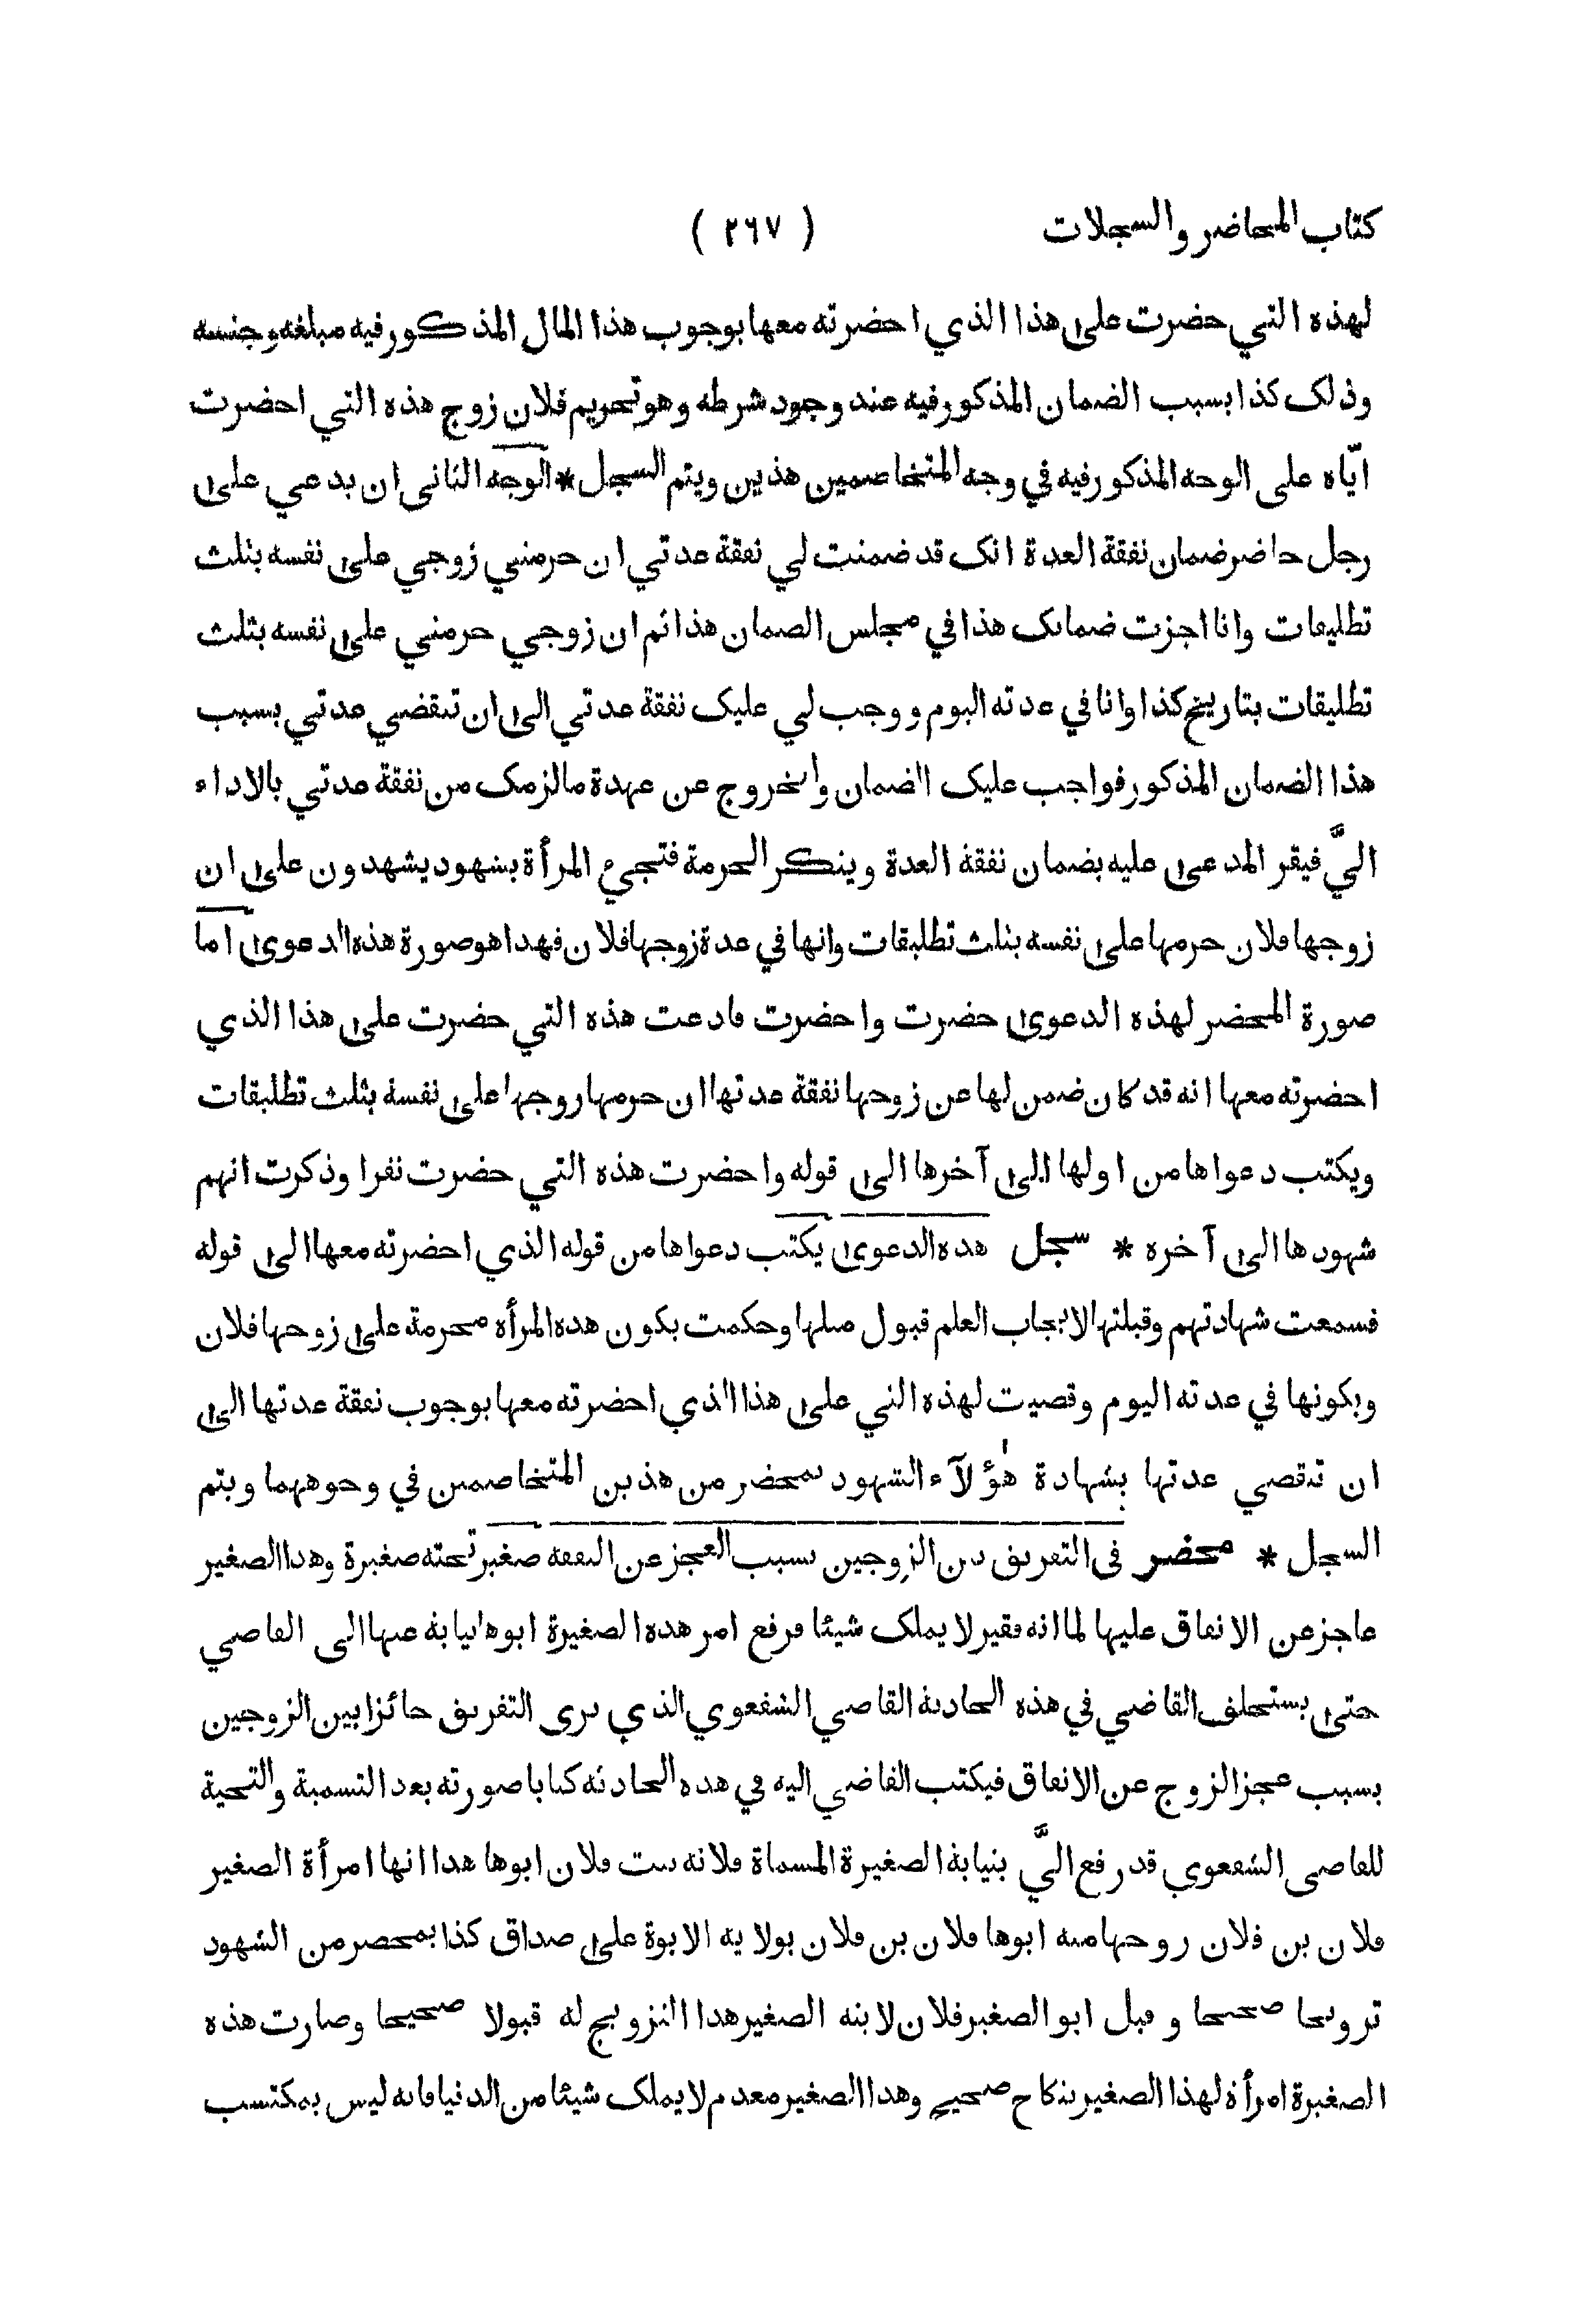 كتاب المحاضر والسجلات ( ٢٦٧ )
لهذه التي حضرت على هذا الذي احضرته معها بوجوب هذا المال المذكور فيه مبلغه وجنسه
وذلك كذا بسبب الضمان المذكور فيه عند وجود شرطه وهو تحريم فلان زوج هذه التي احضرت
ايّاه على الوجه المذكور فيه في وجه المتخاصمين هذين ويتم السجل * الوجه الثاني ان يدعي على
رجل حاضر ضمان نفقة العدة انك قد ضمنت لي نفقة عدتي ان حرمني زوجي على نفسه بثلث
تطليقات وانا اجزت ضمانك هذا في مجلس الضمان هذا ثم ان زوجي حرمني على نفسه بثلث
تطليقات بتاريخ كذا وانا في عدته اليوم ووجب لي عليك نفقة عدتي الى ان تنقضي عدتي بسبب
هذا الضمان المذكور فواجب عليك الضمان والخروج عن عهدة ما لزمك من نفقة عدتي بالاداء
اليَّ فيقر المدعى عليه بضمان نفقة العدة وينكر الحرمة فتجيء المرأة بشهود يشهدون على ان
زوجها فلان حرمها على نفسه بثلث تطليقات وانها في عدة زوجها فلان فهذا هو صورة هذه الدعوى اما
صورة المحضر لهذه الدعوى حضرت واحضرت فادعت هذه التي حضرت على هذا الذي
احضرته معها انه قد كان ضمن لها عن زوجها نفقة عدتها ان حرمها زوجها على نفسه بثلث تطليقات
ويكتب دعواها من اولها الى آخرها الى قوله واحضرت هذه التي حضرت نفرا وذكرت انهم
شهودها الى آخره * سجل هذه الدعوى يكتب دعواها من قوله الذي احضرته معها الى قوله
فسمعت شهادتهم وقبلتها لايجاب العلم قبول مثلها وحكمت بكون هذه المرأة محرمة على زوجها فلان
وبكونها في عدته اليوم وقضيت لهذه التي على هذا الذي احضرته معها بوجوب نفقة عدتها الى
ان تنقضي عدتها بشهادة هؤلآء الشهود بمحضر من هذين المتخاصمين في وجوههما ويتم
السجل * محضر في التفريق بين الزوجين بسبب العجز عن النفقة صغير تحته صغيرة وهذا الصغير
عاجز عن الانفاق عليها لما انه فقير لا يملك شيئا فرفع امر هذه الصغيرة ابوها نيابة عنها الى القاضي
حتى يستخلف القاضي في هذه الحادثة القاضي الشفعوي الذي يرى التفريق جائزا بين الزوجين
بسبب عجز الزوج عن الانفاق فيكتب القاضي اليه في هذه الحادثة كتابا صورته بعد التسمية والتحية
للقاضي الشفعوي قد رفع اليَّ بنيابة الصغيرة المسماة فلانة بنت فلان ابوها هذا انها امرأة الصغير
فلان بن فلان زوجها منه ابوها فلان بن فلان بولاية الابوة على صداق كذا بمحضر من الشهود
تزويجا صحيحا وقبل ابو الصغير فلان لابنه الصغير هذا التزويج له قبولا صحيحا وصارت هذه
الصغيرة امرأة لهذا الصغير بنكاح صحيح وهذا الصغير معدم لا يملك شيئا من الدنيا فانه ليس بمكتسب